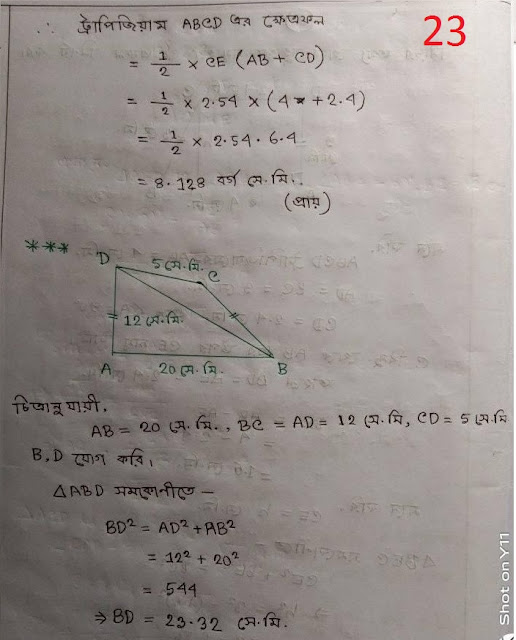 ∴ ট্রাপিজিয়াম ABCD এর ক্ষেত্রফল
23
= 1/2 × CE (AB + CD)
= 1/2 × 2.54 × (4 + 2.4)
= 1/2 × 2.54 . 6.4
= 8.128 বর্গ সে.মি.
(প্রায়)
***
D 5 সে.মি. C
12 সে.মি.
A 20 সে.মি. B
চিত্রানুযায়ী,
AB = 20 সে.মি., BC = AD = 12 সে.মি, CD = 5 সে.মি
B,D যোগ করি।
△ABD সমকোণীতে —
BD² = AD² + AB²
= 12² + 20²
= 544
⇒ BD = 23.32 সে.মি.
Shot on Y11